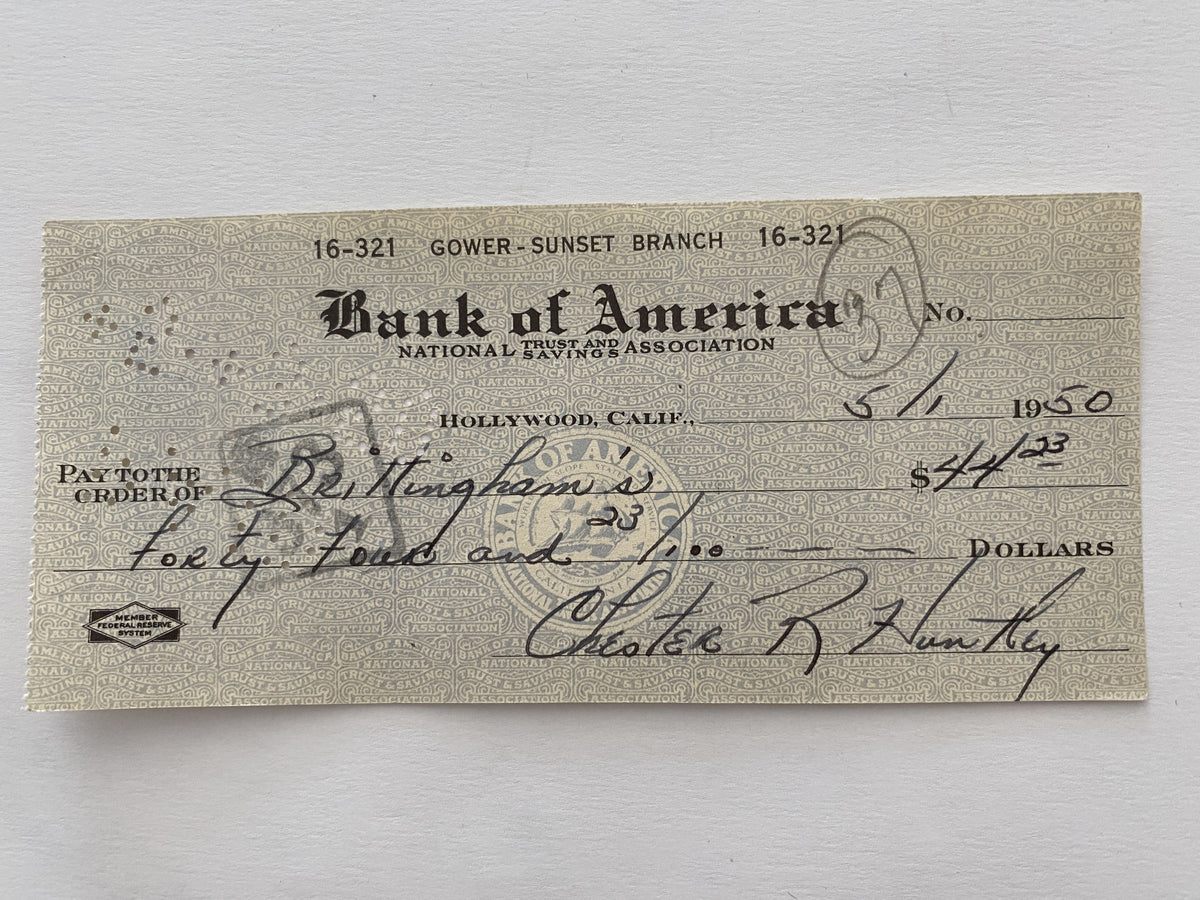 16-321 GOWER-SUNSET BRANCH 16-321
37
Bank of America No.
NATIONAL TRUST AND SAVINGS ASSOCIATION
HOLLYWOOD, CALIF., 5/1 1950
PAY TO THE ORDER OF Brittingham's $44 23
Forty Four and 23/100 DOLLARS
MEMBER FEDERAL RESERVE SYSTEM
Chester R Huntley